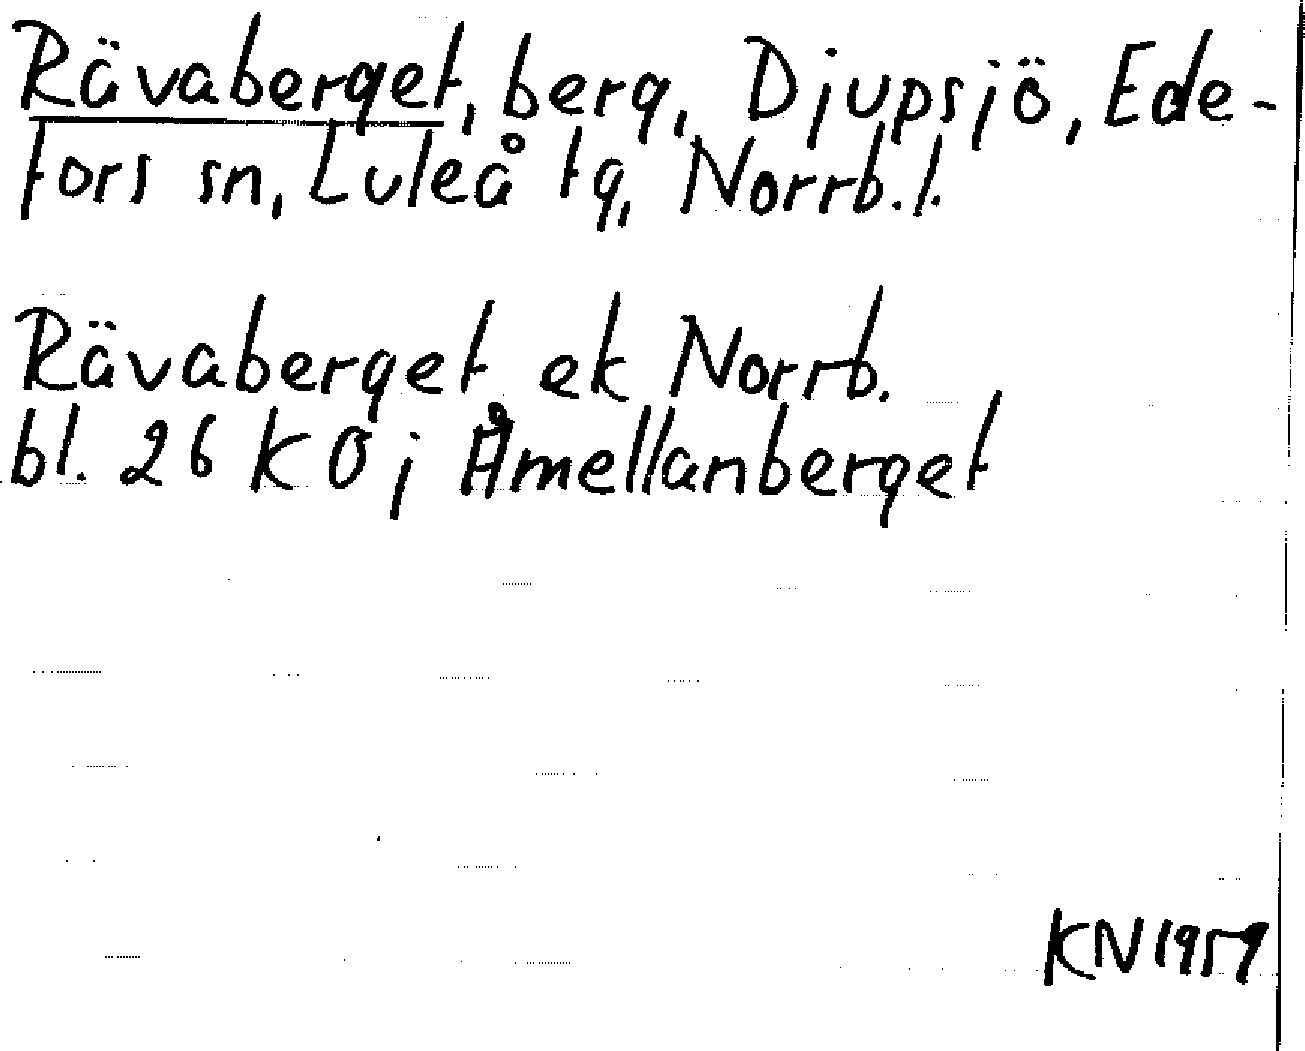 Rävaberget, berg, Djupsjö, Ede-
fors sn, Luleå tg, Norrb.l.
Rävaberget ek Norrb.
bl. 26 KO; Åmellanberget
KN 1959